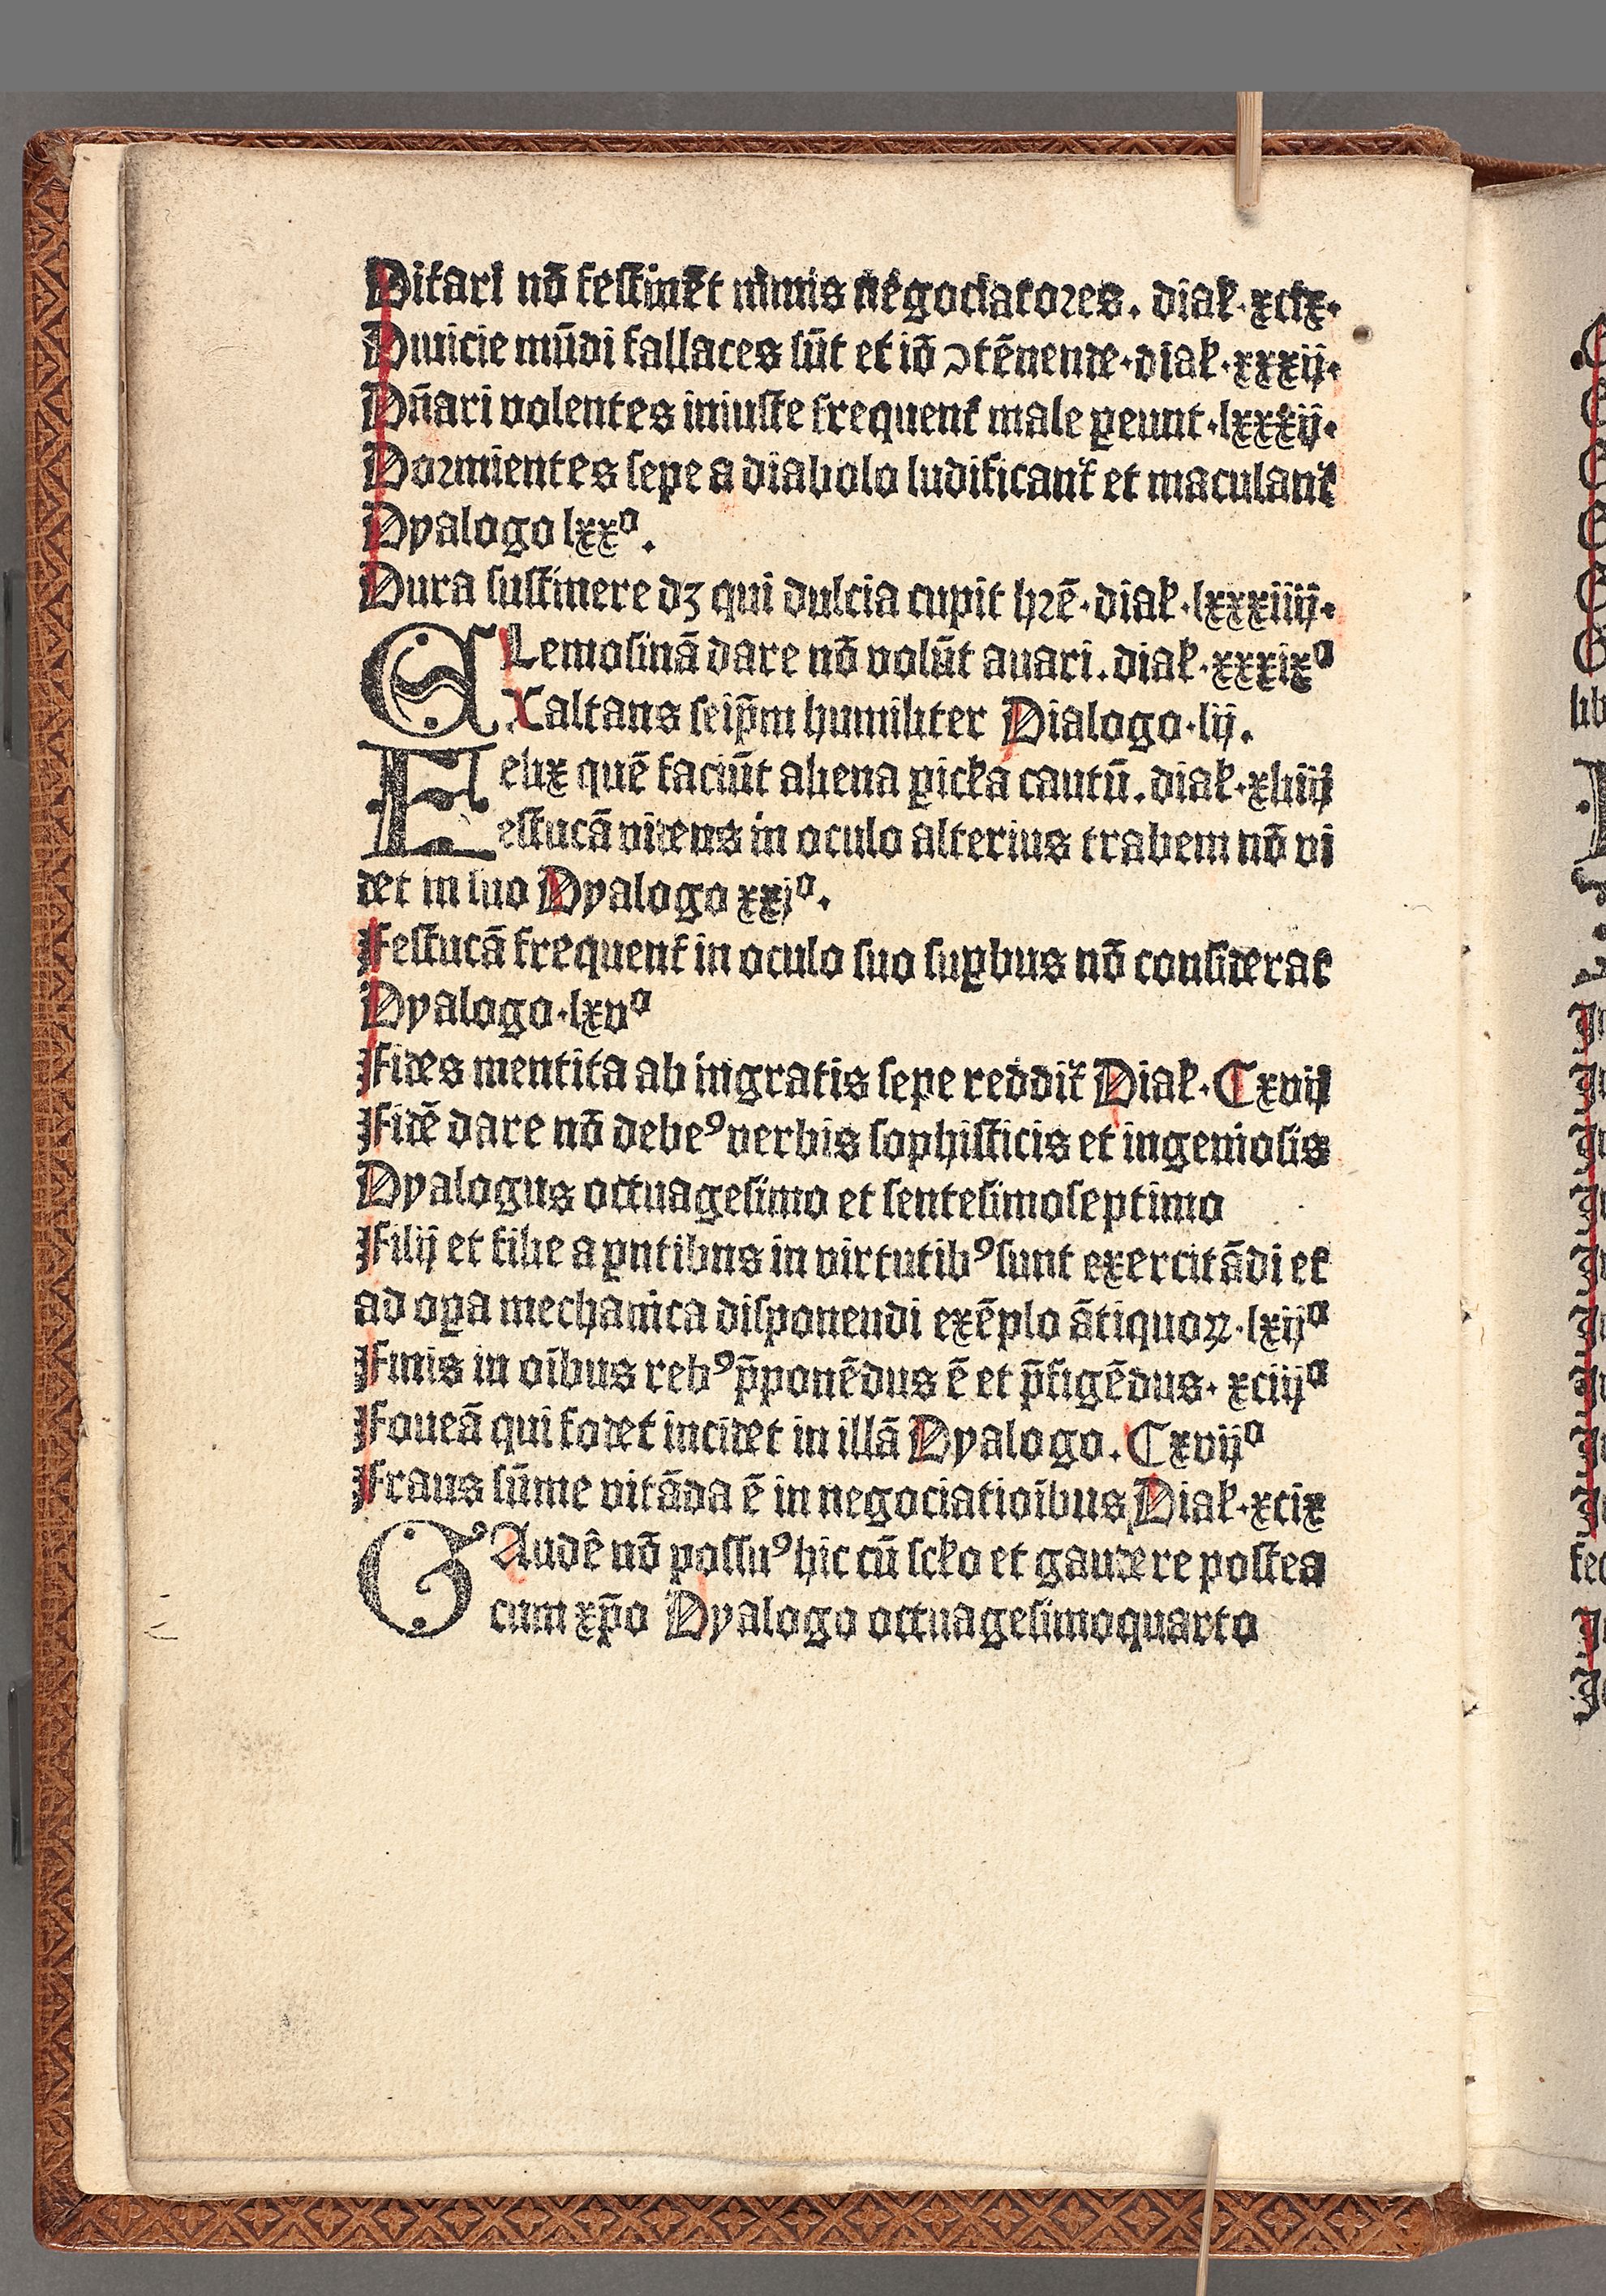 Ditari nō festinēt nimis negociatores. dial̃·xcix·
Diuicie mūdi fallaces sūt et iō ↄtēnende·dial̃·xxxij·
Dn̄ari volentes iniuste frequent̃ male ꝑeunt·lxxxij·
Dormientes sepe a diabolo ludificant̃ et maculant̃
Dyalogo lxxº.
Dura sustinere dꝫ qui dulcia cupit hr̄e·dial̃·lxxxiiij·
ELemosinā dare nō volūt auari.dial̃·xxxixº
Xaltans seip̄m humiliter Dialogo·lij.
Felix quē faciūt aliena ꝑicl̃a cautū.dial̃·xliiij
estucā videns in oculo alterius trabem nō vi
det in suo Dyalogo xxjº.
Festucā frequent̃ in oculo suo suꝑbus nō considerat
Dyalogo·lxvº
Fides mentita ab ingratis sepe reddit̃ Dial̃·Cxvij
Fidē dare nō debeꝰ verbis sophisticis et ingeniosis
Dyalogus octuagesimo et sentesimoseptimo
Filij et filie a ꝑntibus in virtutibꝰ sunt exercitādi et
ad oꝑa mechanica disponendi exēplo ātiquoꝝ·lxijº
Finis in oībus rebꝰ p̄ponēdus ē et p̄figēdus· xciijº
Foueā qui fodet incidet in illā Dyalogo.Cxvijº
Fraus sūme vitāda ē in negociatioībus Dial̃·xcix
GAudē nō possuꝰ hic cū scl̃o et gaudere postea
cum xp̄o Dyalogo octuagesimoquarto